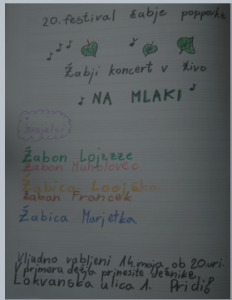 20. festival žabje popevke
Žabji koncert v živo
NA MLAKI
Žabon Lojzzze
Žabon
Žabica
Žabon Francek
Žabica Marjetka
Vljudno vabljeni 14. maja ob 20. uri.
V primeru dežja prinesite dežnike.
Lokvanjska ulica 1. Pridi!